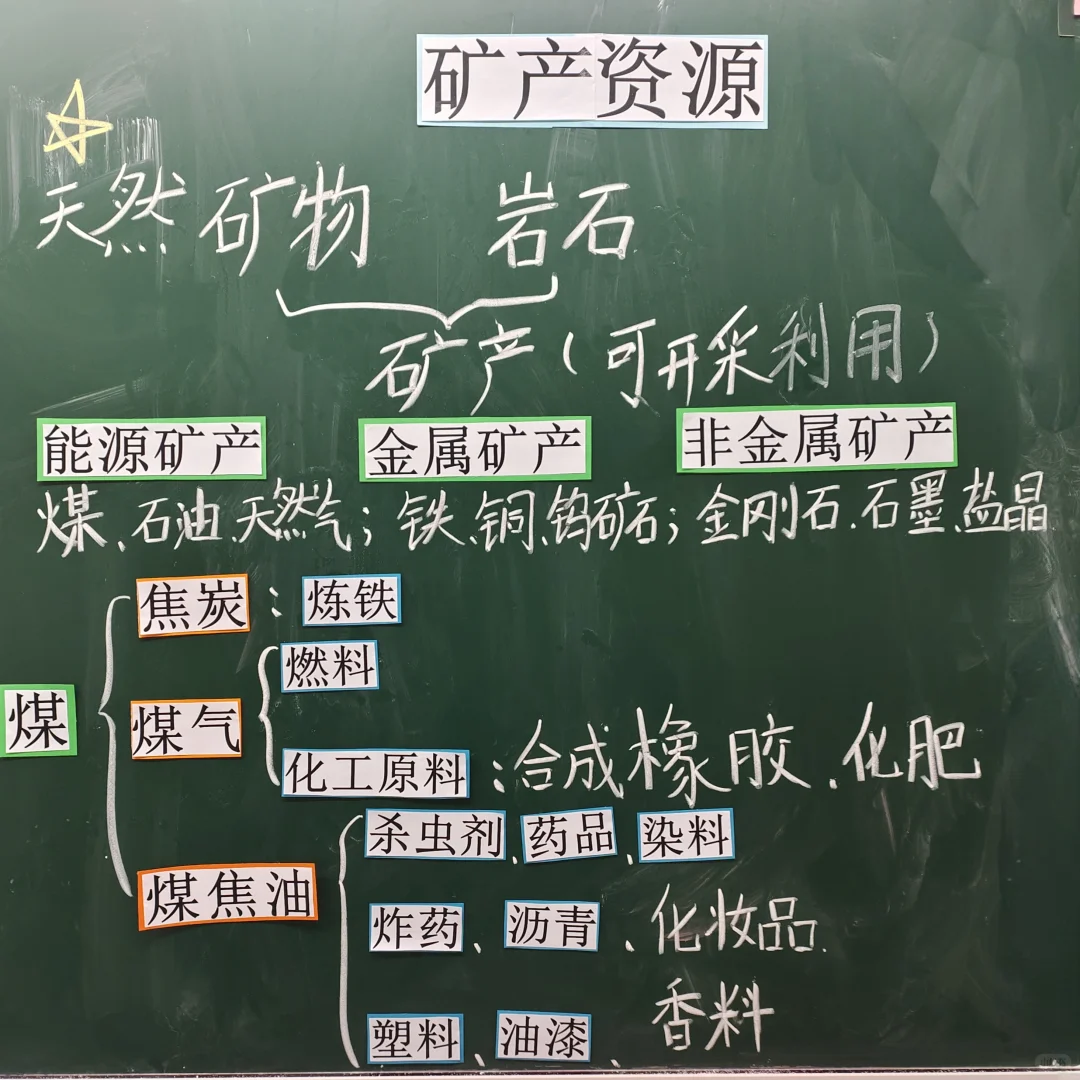 矿产资源
天然矿物 岩石
矿产(可开采利用)
能源矿产 金属矿产 非金属矿产
煤、石油、天然气;铁、铜、钨矿石;金刚石、石墨、盐晶
焦炭:炼铁
燃料
煤 煤气
化工原料:合成橡胶、化肥
杀虫剂、药品、染料
煤焦油
炸药、沥青、化妆品、
香料
塑料、油漆、